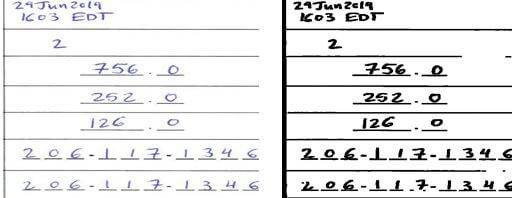 29Jun2019
1603 EDT
2
756.0
252.0
126.0
206-117-1346
206-117-1346
29Jun2019
1603 EDT
2
756.0
252.0
126.0
206-117-1346
206-117-1346